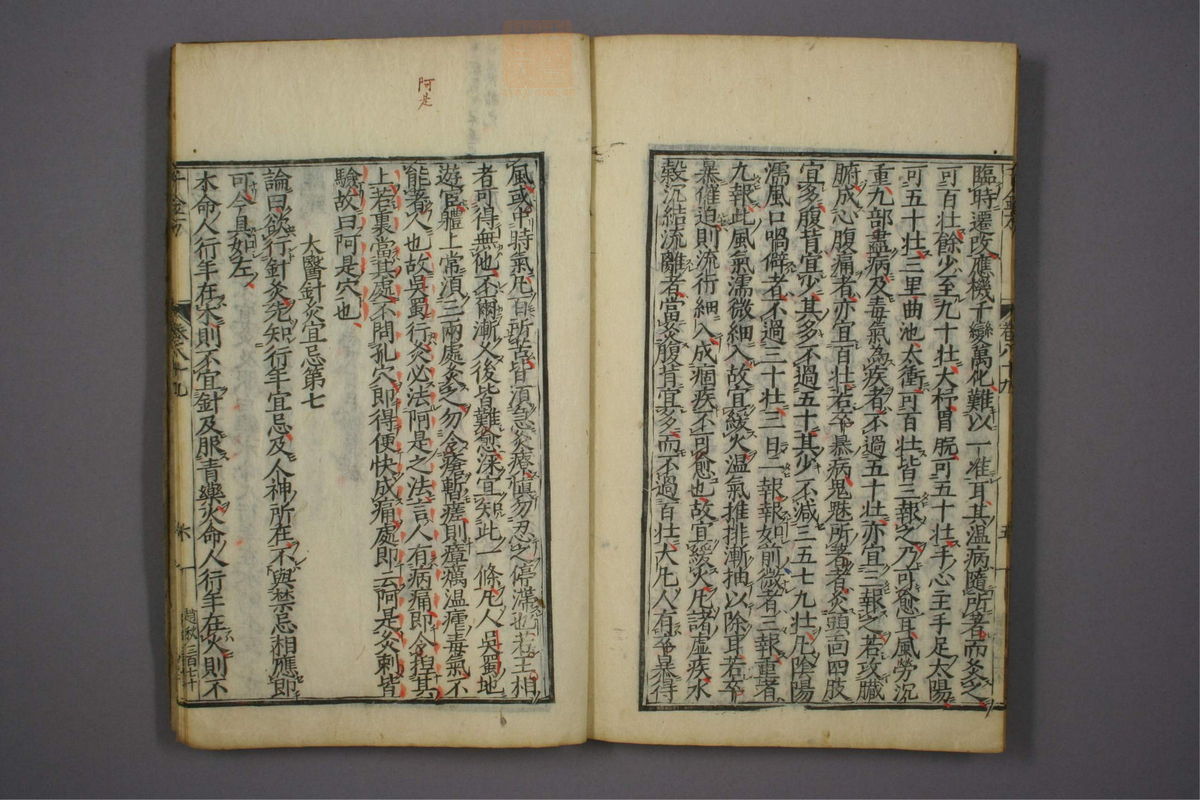 臨時遷改應機千變萬化難以一准耳其溫病隨所著而灸之
可百壯餘少至九十壯大杼胃脘可五十壯手心主手足太陽
可五十壯三里曲池太衝可百壯皆三報之乃可愈耳風勞沉
重九部盡病及毒氣為疾者不過五十壯亦宜三報之若攻臟
腑成心腹痛者亦宜百壯若卒暴病鬼魅所著者灸頭面四肢
宜多腹背宜少其多不過五十其少不減三五七九壯凡陰陽
濡風口喎僻者不過三十壯三日一報報如前微者三報重者
九報此風氣濡微細入故宜緩火溫氣推排漸抽以除耳若卒
暴催迫則流行細入成痼疾不可愈也故宜緩火凡諸虛疾水
穀沉結流離者當灸腹背宜多而不過百壯大凡人有卒暴得
風或中時氣凡百所苦皆須急灸療慎勿忍之停滯也若王相
者可得無他不爾漸久後皆難愈深宜知此一條凡人吳蜀地
遊官體上常須三兩處灸之勿令瘡暫瘥則瘴癘溫瘧毒氣不
能著人也故吳蜀行灸必法阿是之法言人有病痛即令捏其
上若裏當其處不問孔穴即得便快成痛處即云阿是灸刺皆
驗故曰阿是穴也
太醫針灸宜忌第七
論曰欲行針灸先知行年宜忌及人神所在不與禁忌相應即
可今具如左
木命人行年在木則不宜針及服青藥火命人行年在火則不
阿是
卷八十九
五